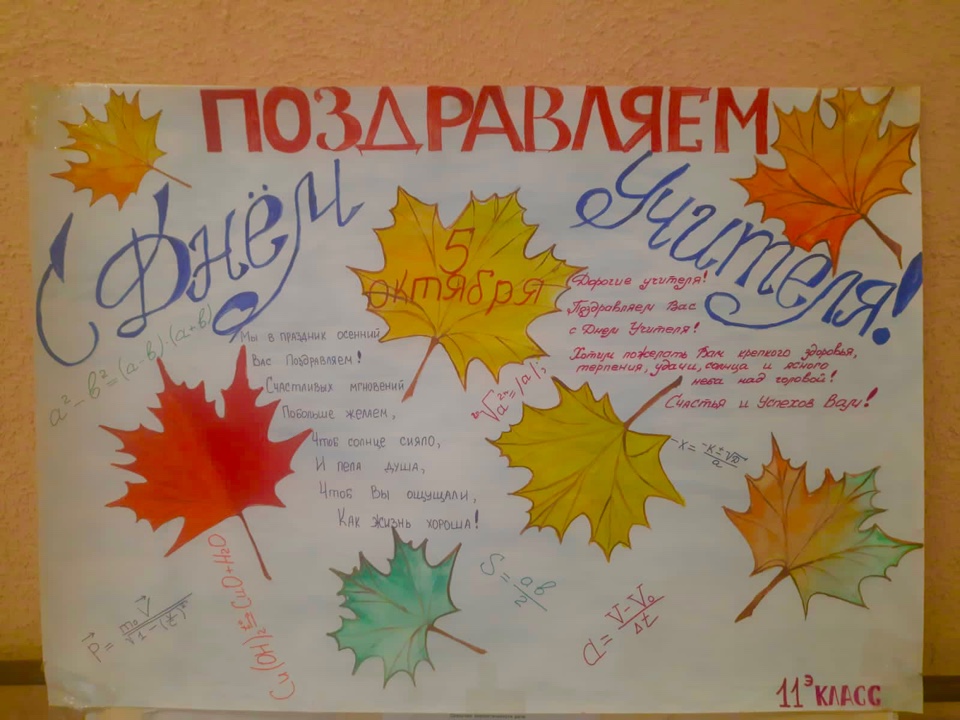 ПОЗДРАВЛЯЕМ
С Днём Учителя!
5
октября
Мы в праздник осенний
Вас Поздравляем!
Счастливых мгновений
Побольше желаем,
Чтоб солнце сияло,
И пела душа,
Чтоб Вы ощущали,
Как жизнь хороша!
Дорогие учителя!
Поздравляем Вас
с Днем Учителя!
Хотим пожелать Вам крепкого здоровья,
терпения, удачи, солнца и ясного
неба над головой!
Счастья и Успехов Вам!
a² - b² = (a-b)·(a+b)
x = -k±√D / a
p⃗ = m₀v⃗ /
Cu(OH)₂ CuO + H₂O
S = ab / 2
a = V-V₀ / Δt
11 Э КЛАСС